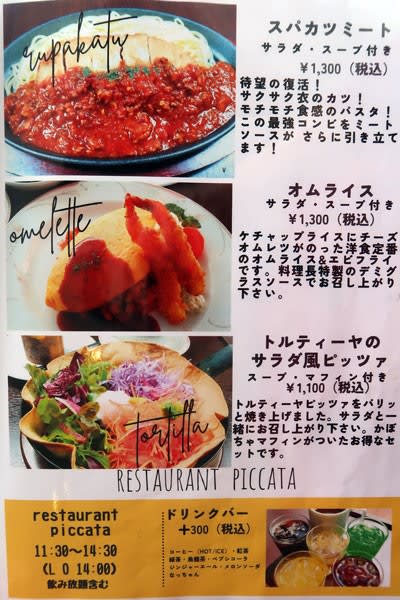 rupakatu
スパカツミート
サラダ・スープ付き
￥1,300（税込）
待望の復活！
サクサク衣のカツ！
モチモチ食感のパスタ！
この最強コンビをミート
ソースが さらに引き立て
ます！
omelette
オムライス
サラダ・スープ付き
￥1,300（税込）
ケチャップライスにチーズ
オムレツがのった洋食定番
のオムライス&エビフライ
です。料理長特製のデミグ
ラスソースでお召し上がり
下さい。
tortilla
トルティーヤの
サラダ風ピッツァ
スープ・マフィン付き
￥1,100（税込）
トルティーヤピッツァをパリッ
と焼き上げました。サラダと一
緒にお召し上がり下さい。かぼ
ちゃマフィンがついたお得なセ
ットです。
RESTAURANT PICCATA
restaurant
piccata
11:30〜14:30
(L O 14:00)
飲み放題含む
ドリンクバー
+300（税込）
コーヒー（HOT/ICE）・紅茶
緑茶・烏龍茶・ペプシコーラ
ジンジャーエール・メロンソーダ
なっちゃん